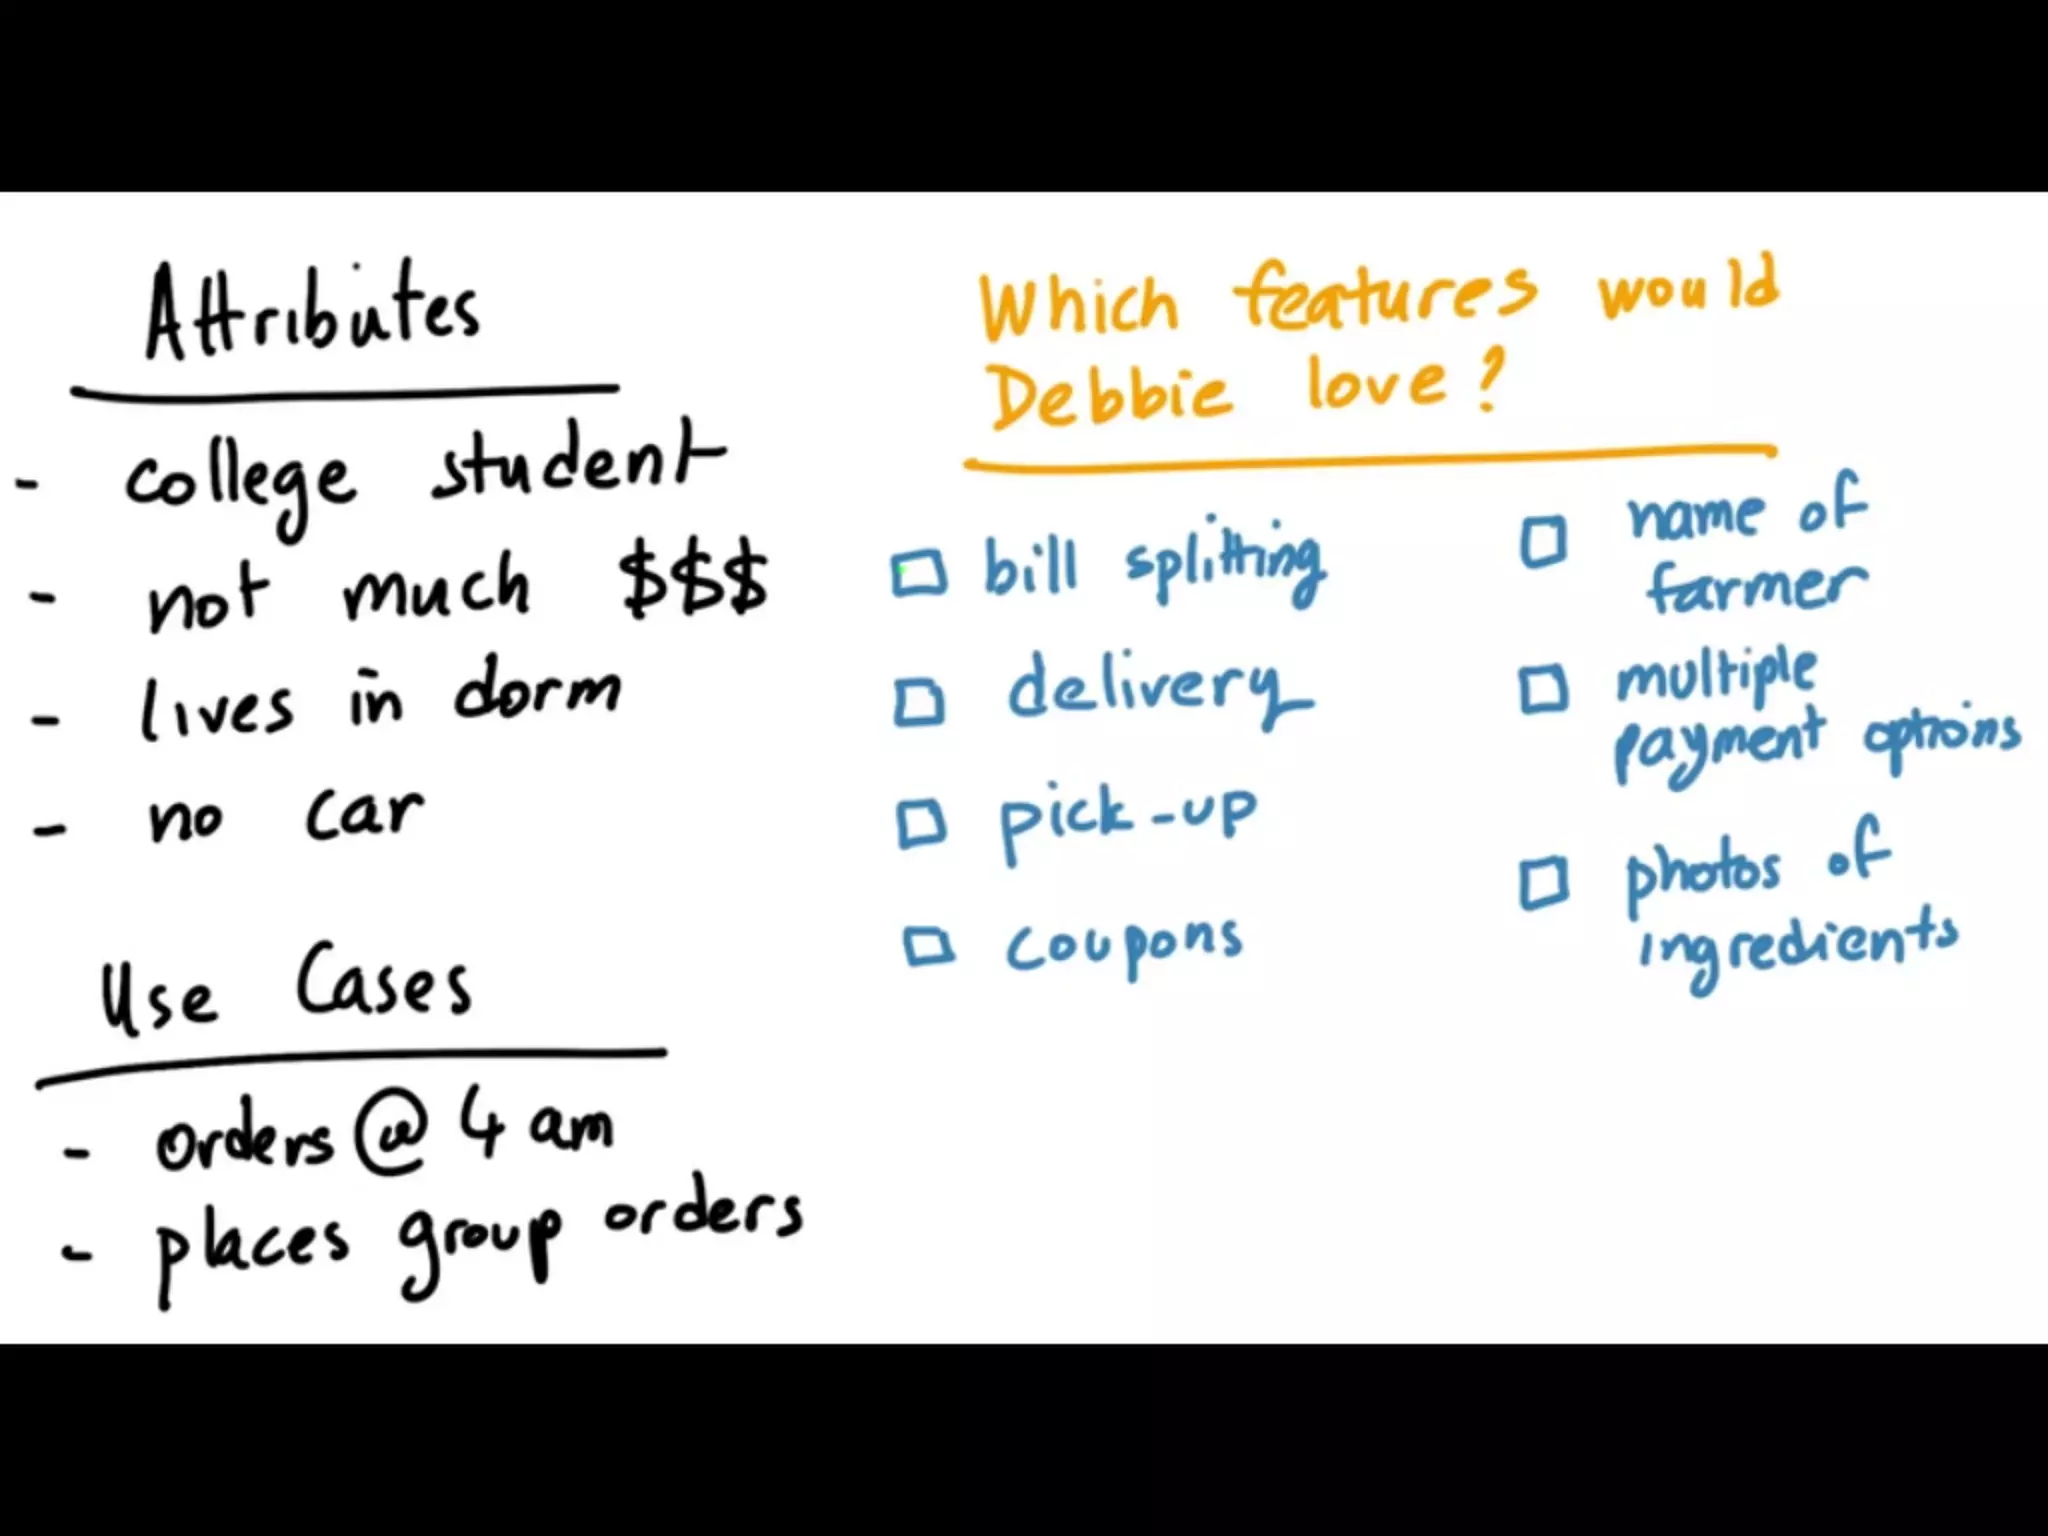 Attributes
- college student
- not much $$$
- lives in dorm
- no car
Use Cases
- orders @ 4 am
- places group orders
Which features would
Debbie love?
bill splitting
delivery
pick-up
coupons
name of
farmer
multiple
payment options
photos of
ingredients